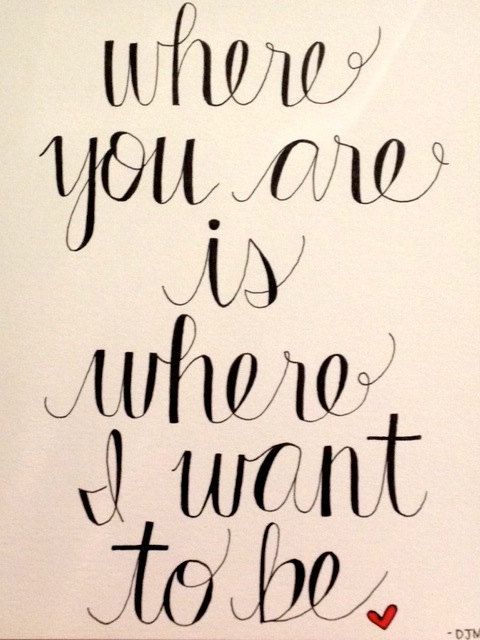 where
you are
is
where
I want
to be
- DJM